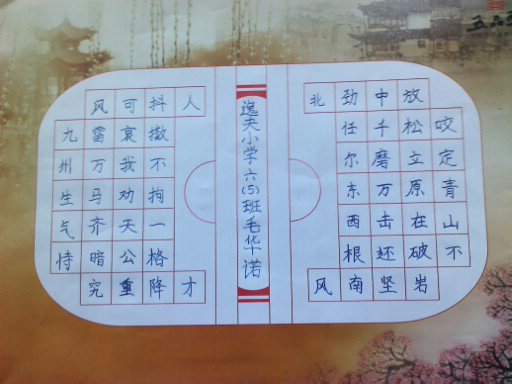 咬定青山不
放松立原在破岩
中千磨万击还坚
劲任尔东西根南
北风
逸夫小学六(5)班毛华诺
人才
抖擞不拘一格降
可哀我劝天公重
风雷万马齐暗究
九州生气恃